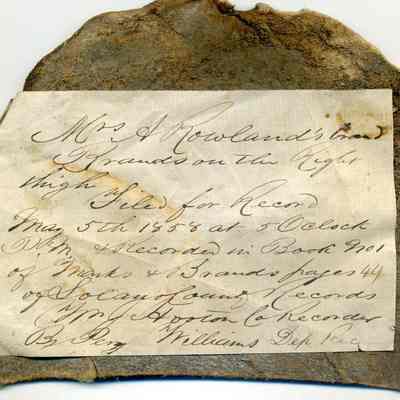 Mrs A Rowland's Brand
Brands on the Right
thigh
Filed for Record
May 5th 1858 at 5 OClock
P.M. & Recorded in Book No 1
of Marks & Brands pages 44
of Solano County Records
Wm J Hooton Co Recorder
By Perry Williams Dep Rec